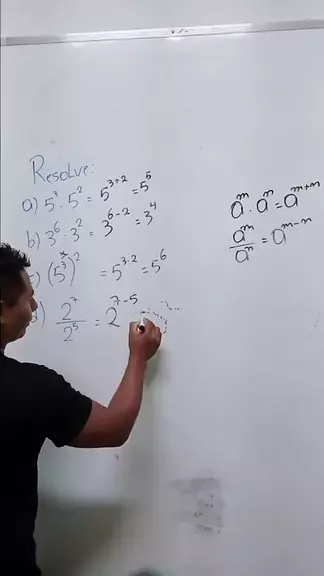 Resolve:
a) 5³ · 5² = 5³⁺² = 5⁵
b) 3⁶ · 3² = 3⁶⁻² = 3⁴
) (5³)² = 5³·² = 5⁶
) 2⁷/2⁵ = 2⁷⁻⁵
aᵐ · aⁿ = aᵐ⁺ⁿ
aᵐ/aⁿ = aᵐ⁻ⁿ